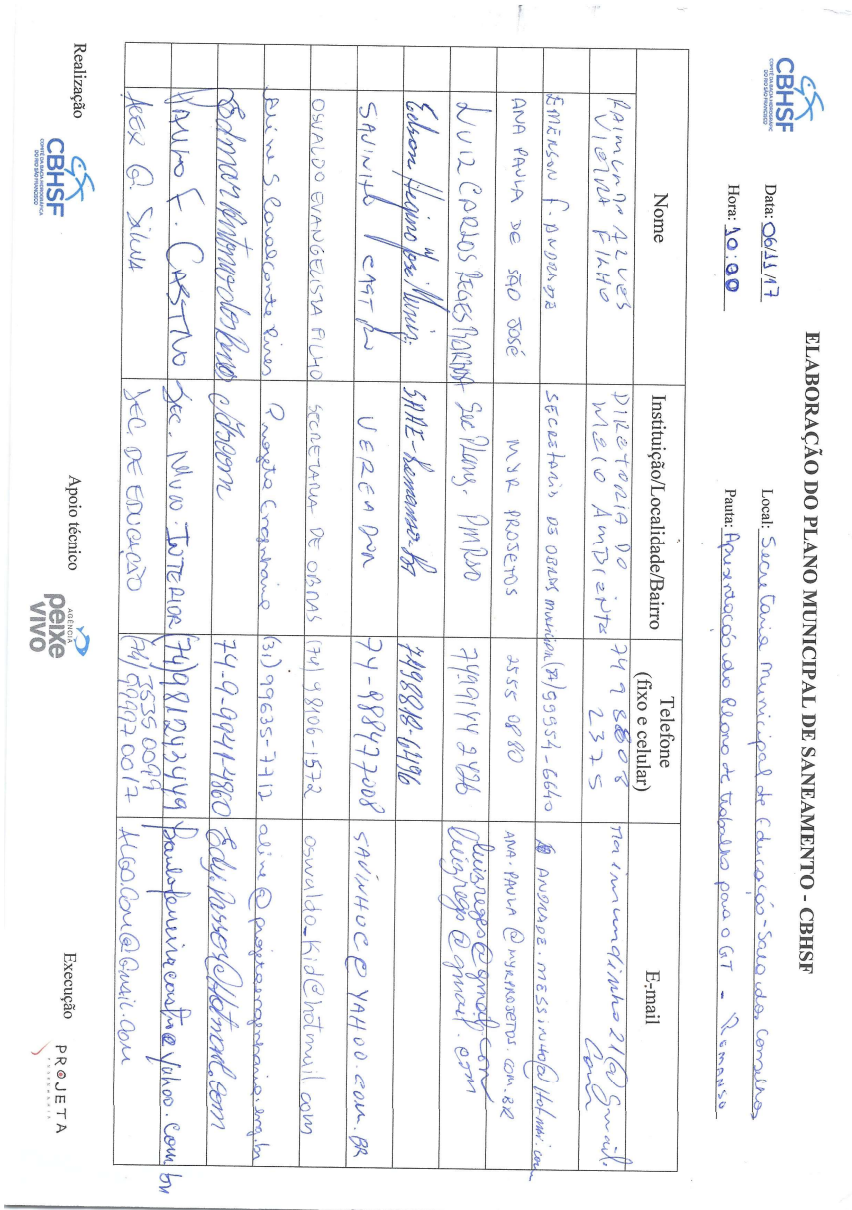 CBHSF
COMITÊ DA BACIA HIDROGRÁFICA
DO RIO SÃO FRANCISCO
ELABORAÇÃO DO PLANO MUNICIPAL DE SANEAMENTO - CBHSF
Data: 06/11/17
Local: Secretaria Municipal de Educação - Sala dos Conselhos
Hora: 10:00
Pauta: Apresentação do Plano de trabalho para o GT - Remanso
Nome
Instituição/Localidade/Bairro
Telefone
(fixo e celular)
E-mail
RAIMUNDO ALVES
VIEIRA FILHO
DIRETORIA DO
MEIO AMBIENTE
2375
raimundinho21@gmail.
com
EMERSON F. ANDRADE
SECRETARIA DE OBRAS MUNICIPAL
(74) 99954-6640
ANDRADE.MESSINHO@HOTMAIL.COM
ANA PAULA DE SÃO JOSÉ
MYR PROJETOS
2555 0880
ANA.PAULA@MYRPROJETOS.COM.BR
LUIZ CARLOS
Sec Planj. PMRSO
74991442426
luizrego@gmail.com
luizrego@gmail.com
Edson Higino José Muniz
SAAE-Remanso-Ba
7498818-6496
SAVINHO CASTRO
VEREADOR
74-988477008
SAVINHOC@YAHOO.COM.BR
OSVALDO EVANGELISTA FILHO
SECRETARIA DE OBRAS
(74) 98106-1572
oswaldo_kid@hotmail.com
Aline S Cavalcante Pires
Projeta Engenharia
(31) 99635-7712
aline@projetaengenharia.eng.br
Edmar Antonio dos Passos
74-9-9941-4860
Edy.Passos@Hotmail.com
PAULO F. CASTRO
SEC. INTERIOR
(74) 981243449
Pauloferreiracastro@yahoo.com.br
ALEX G. SILVA
SEC. DE EDUCAÇÃO
(74) 3535 0099
99970017
ALGO.COM@GMAIL.COM
Realização
CBHSF
COMITÊ DA BACIA HIDROGRÁFICA
DO RIO SÃO FRANCISCO
Apoio técnico
AGÊNCIA
peixe
vivo
Execução
PROJETA
ENGENHARIA